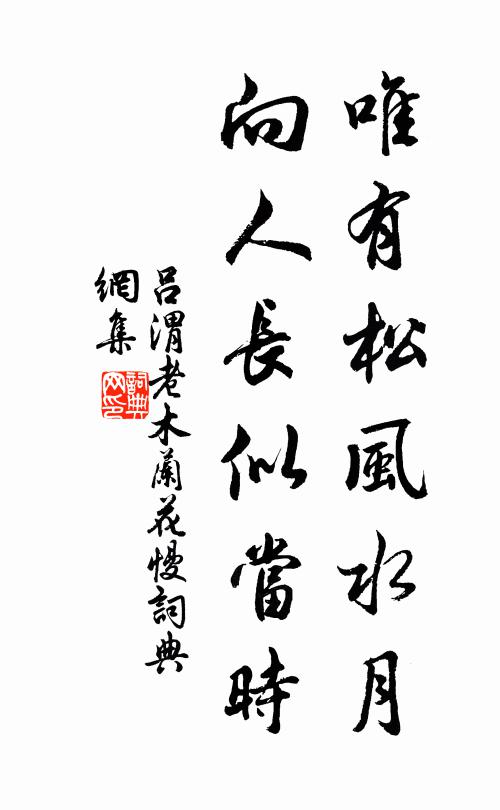 唯有松風水月
向人長似當時
呂渭老木蘭花慢詞典
網集
詞典
网印